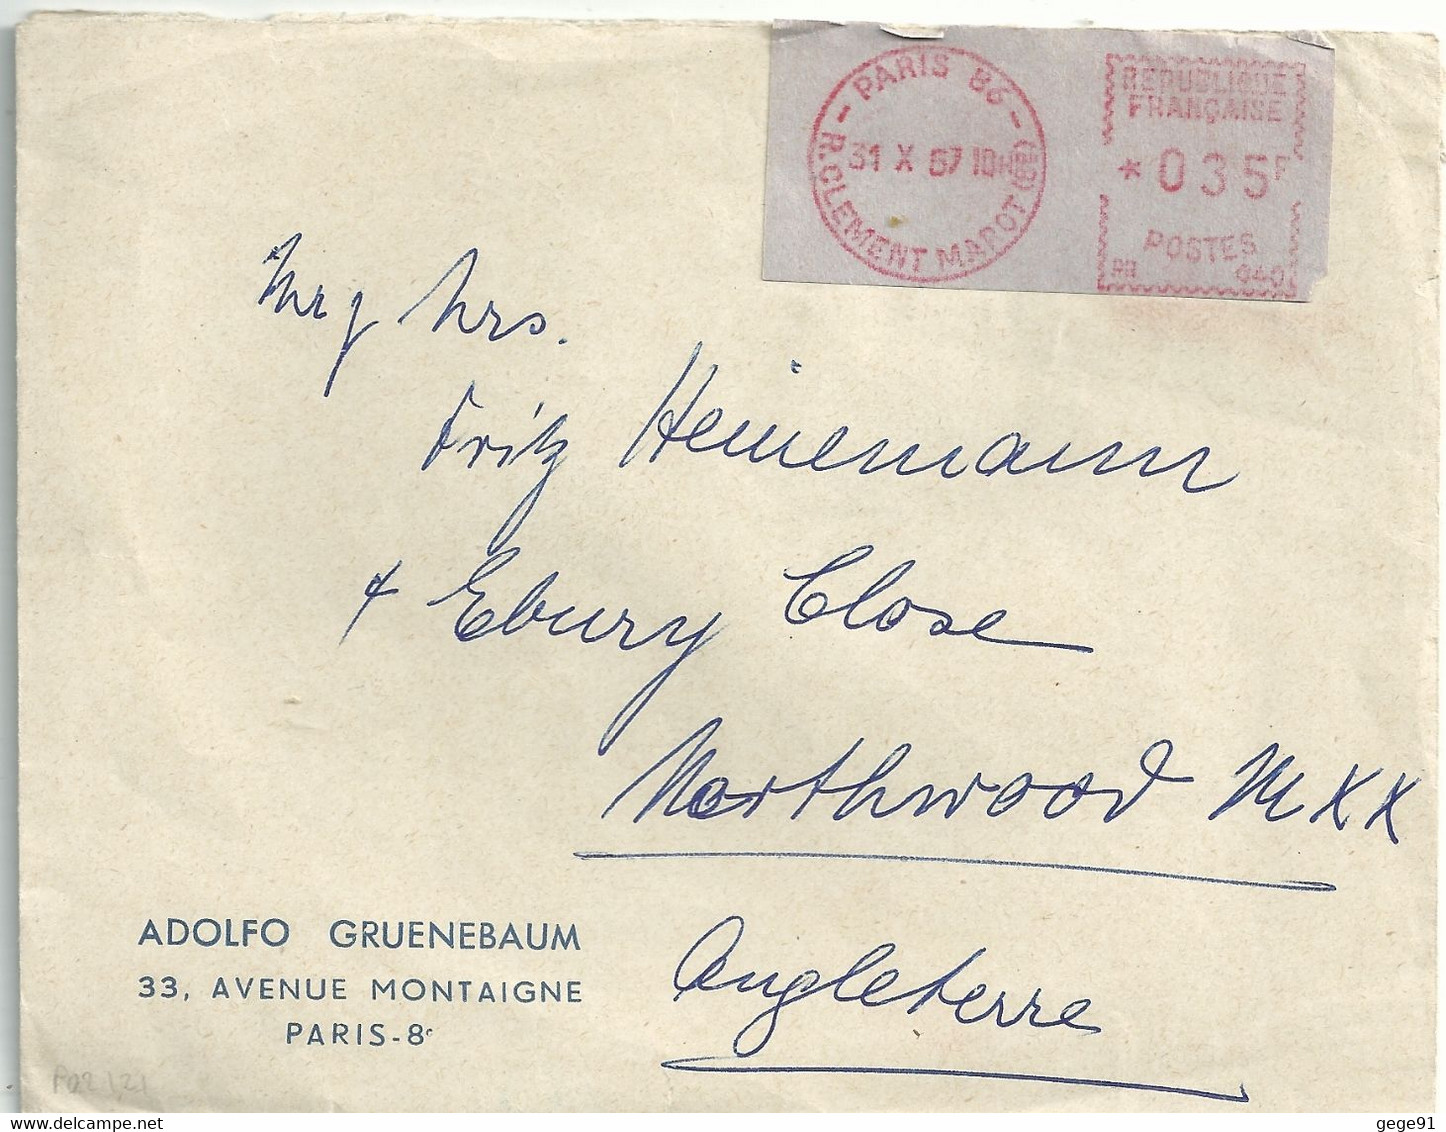 PARIS 86
R. CLEMENT MAROT (8E)
31 X 67 10H
REPUBLIQUE
FRANÇAISE
* 035F
POSTES
Mr & Mrs.
Fritz Heinemann
4 Ebury Close
Northwood MXX
Angleterre
ADOLFO GRUENEBAUM
33, AVENUE MONTAIGNE
PARIS-8e
delcampe.net
gege91